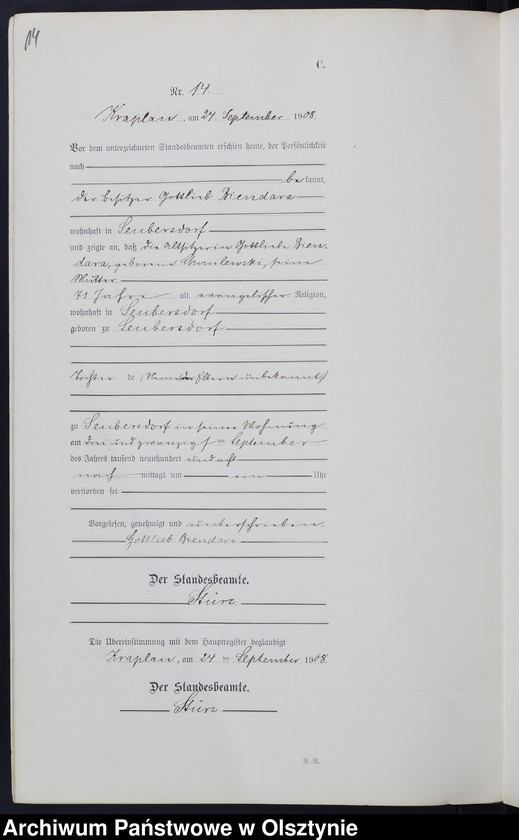 14
C.
Nr. 14
Kraplau, am 24 September 1908.
Vor dem unterzeichneten Standesbeamten erschien heute, der Persönlichkeit
nach
bekannt,
der Besitzer Gottlieb Biendara
wohnhaft in Seubersdorf
und zeigte an, daß die Altsitzerin Gottliebe Bien-
dara, geborene Chmilewski, seine
Mutter
71 Jahre alt, evangelischer Religion,
wohnhaft in Seubersdorf
geboren zu Seubersdorf
Tochter de (Namen der Eltern unbekannt)
zu Seubersdorf in seiner Wohnung
am drei und zwanzigsten September
des Jahres tausend neunhundert und acht
nach mittags um ein Uhr
verstorben sei.
Vorgelesen, genehmigt und unterschrieben.
Gottlieb Biendara
Der Standesbeamte.
Stürz
Die Übereinstimmung mit dem Hauptregister beglaubigt
Kraplau, am 24 ten September 1908.
Der Standesbeamte.
Stürz
Archiwum Państwowe w Olsztynie